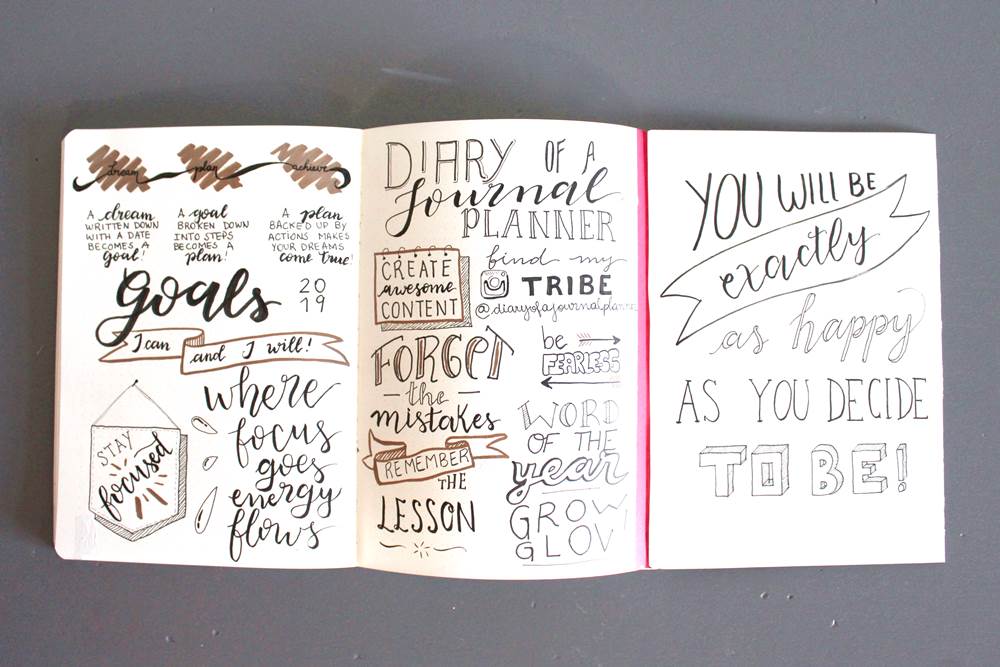 dream plan achieve
A dream
WRITTEN DOWN
WITH A DATE
BECOMES A
goal!
A goal
BROKEN DOWN
INTO STEPS
BECOMES A
plan!
A plan
BACKED UP BY
ACTIONS MAKES
YOUR DREAMS
come true!
Goals
20
19
I can and I will!
STAY
focused
where
focus
goes
energy
flows
DIARY OF A
Journal
PLANNER
CREATE
awesome
CONTENT
find my
TRIBE
@diaryofajournalplanne
FORGET
the
mistakes
REMEMBER
THE
LESSON
be
FEARLESS
WORD
OF THE
year
GROW
GLOW
YOU WILL BE
exactly
as happy
AS YOU DECIDE
TO BE!